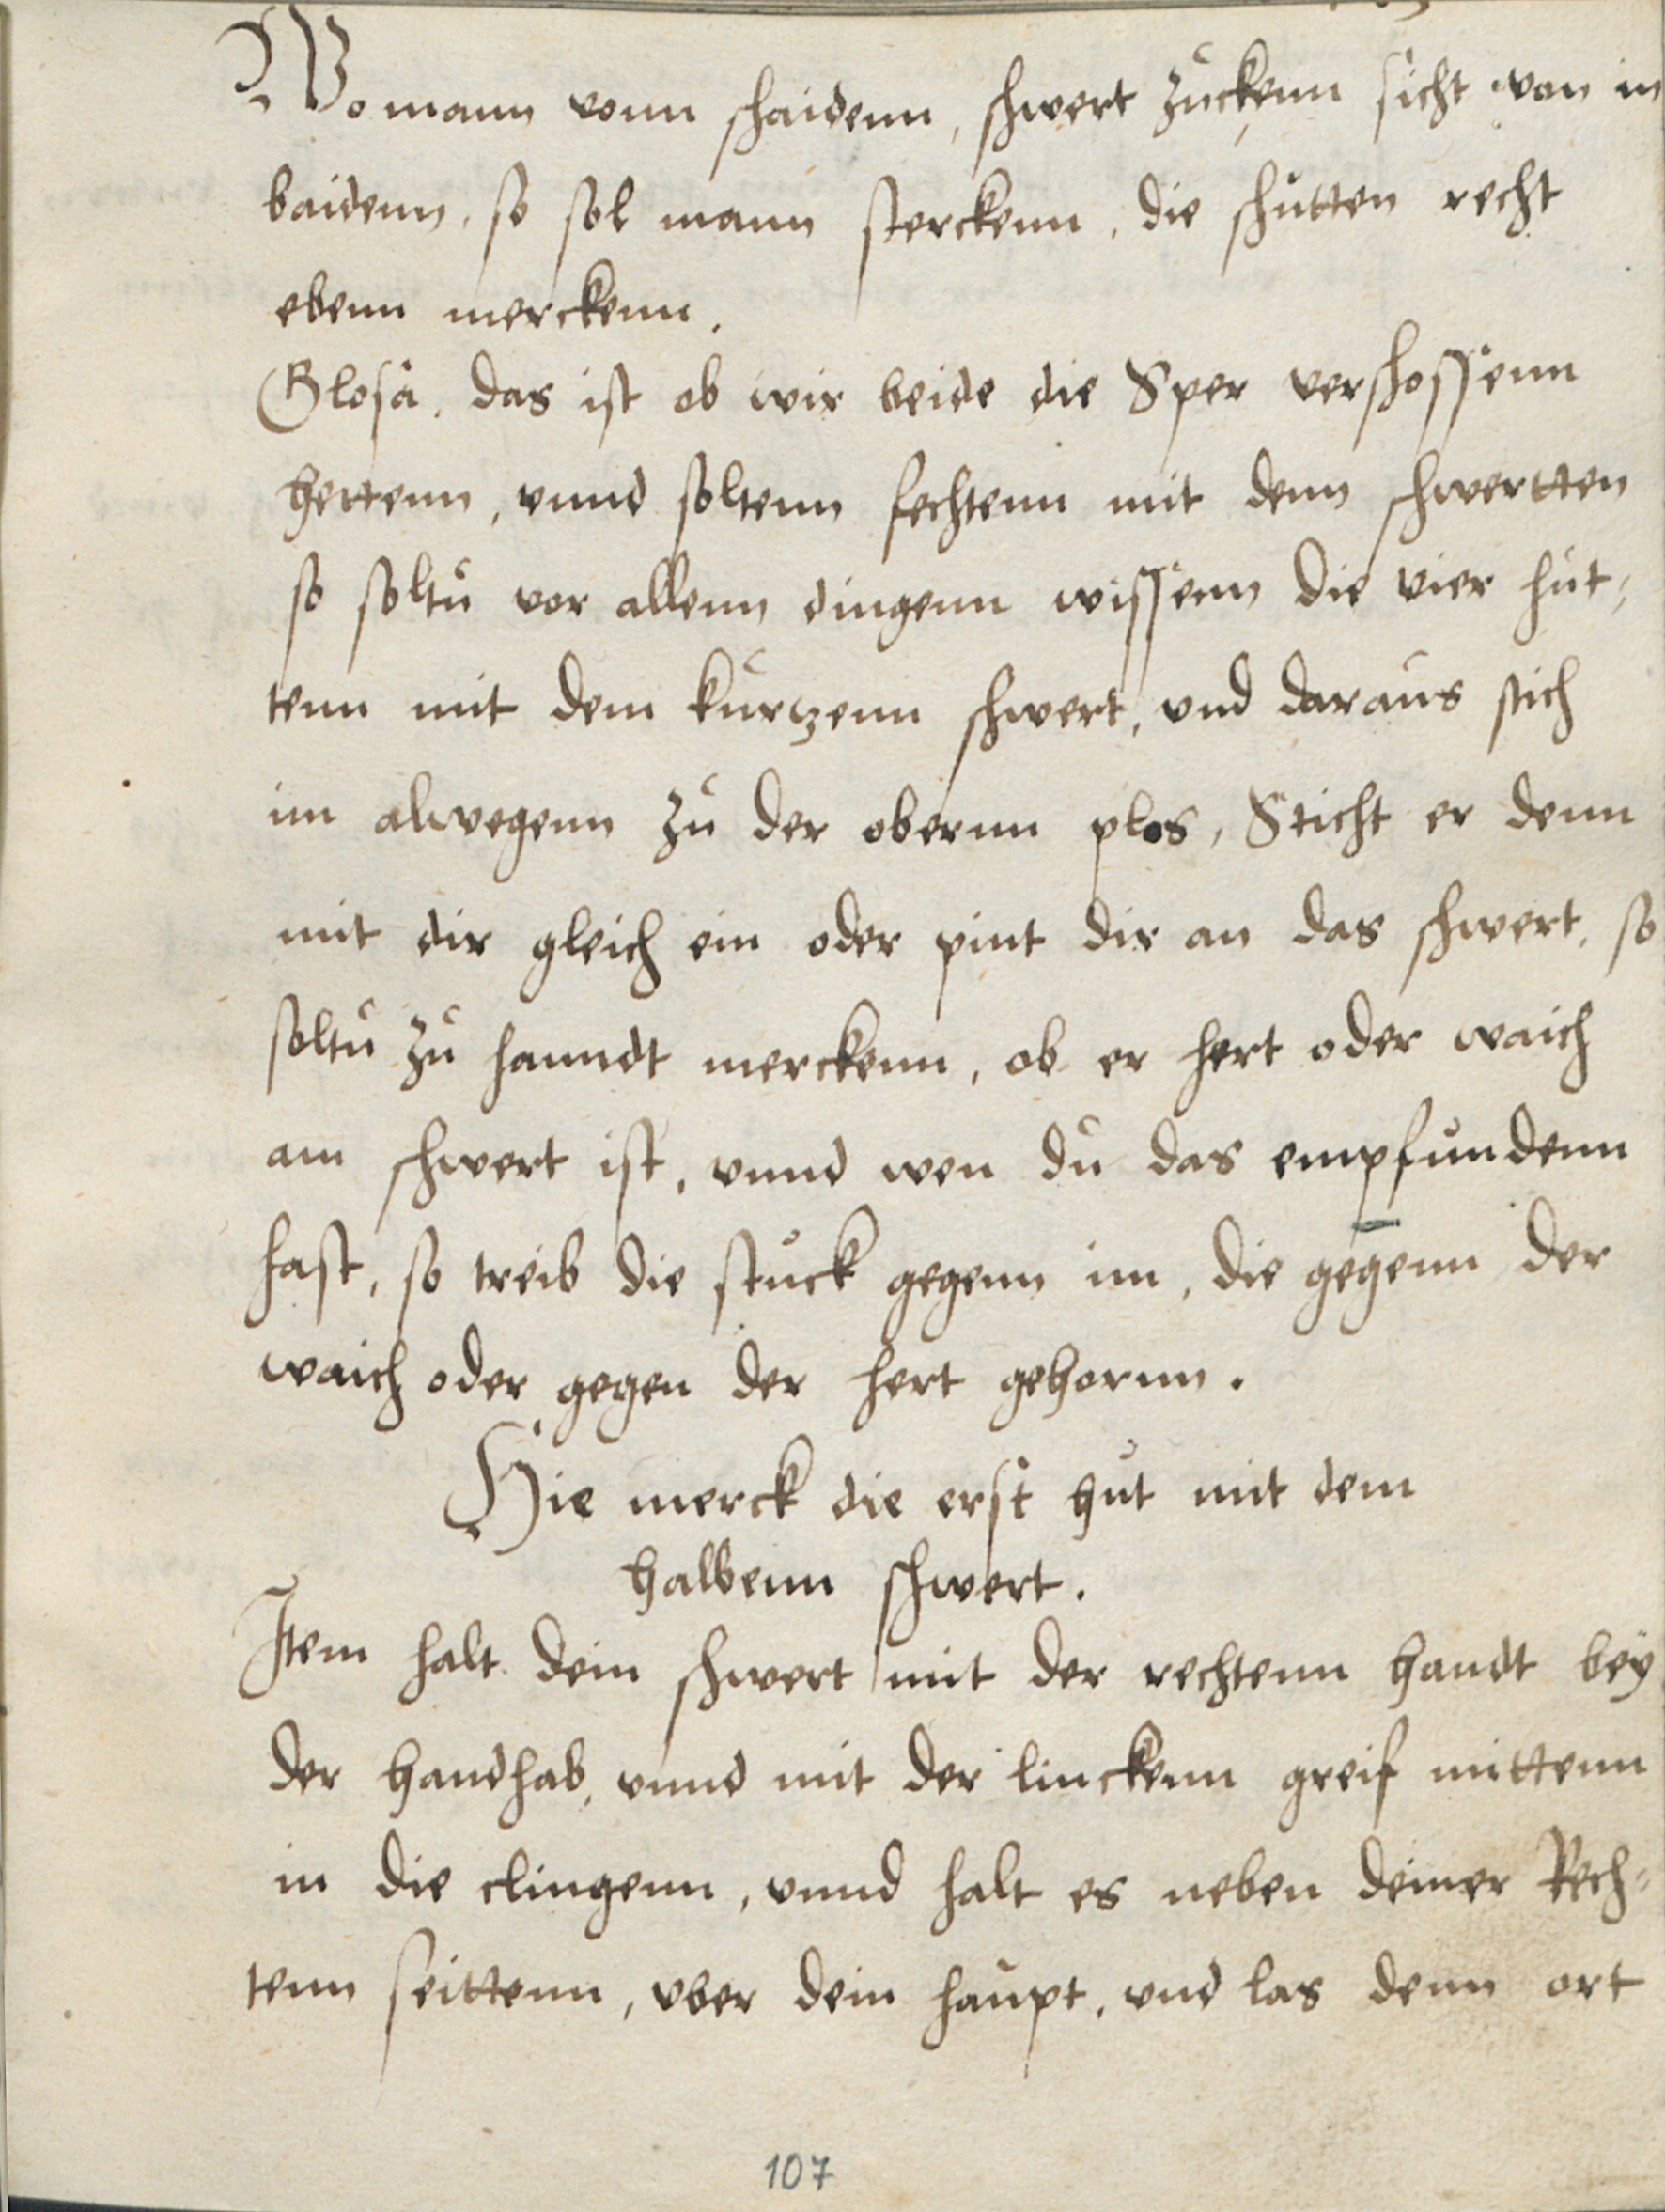 Wo mann vonn schaidenn, schwert zuckenn sicht von in
baidenn, so sol mann sterckenn, die schutten recht
ebenn merckenn.
Glosa. das ist ob wir beide die Sper verschossenn
hettenn, vnnd soltenn fechtenn mit denn schwertten
so soltu vor allenn dingenn wissenn die vier hut,
tenn mit dem kurtzenn schwert, vnd daraus stich
im alwegenn zu der obernn plos, Sticht er denn
mit dir gleich ein oder pint dir an das schwert, so
soltu zu hanndt merckenn, ob er hert oder waich
am schwert ist, vnnd wen du das empfundenn
hast, so treib die stuck gegenn im, die gegenn der
waich oder gegen der hert gehornn.
Hie merck die erst hut mit dem
halbenn schwert.
Item halt dein schwert mit der rechtenn handt bey
der handhab, vnnd mit der linckenn greif mittenn
in die clingenn, vnnd halt es neben deiner Rech=
tenn seittenn, vber dein haupt, vnd las denn ort
107